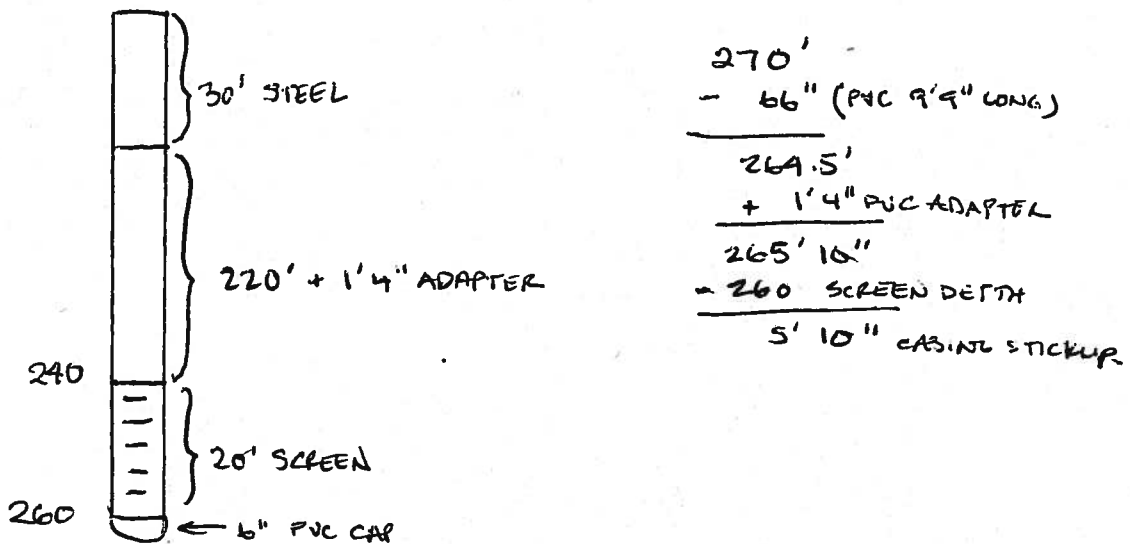 30' STEEL
220' + 1'4" ADAPTER
240
20' SCREEN
260
← 6" PVC CAP
270'
- 66" (PVC 9'9" LONG)
264.5'
+ 1'4" PVC ADAPTER
265' 10"
- 260 SCREEN DEPTH
5' 10" CASING STICKUP